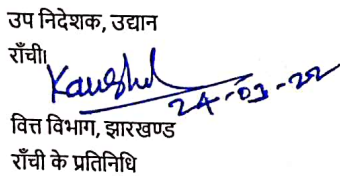 उप निदेशक, उद्यान
राँची।
Kaushal
24-03-22
वित्त विभाग, झारखण्ड
राँची के प्रतिनिधि